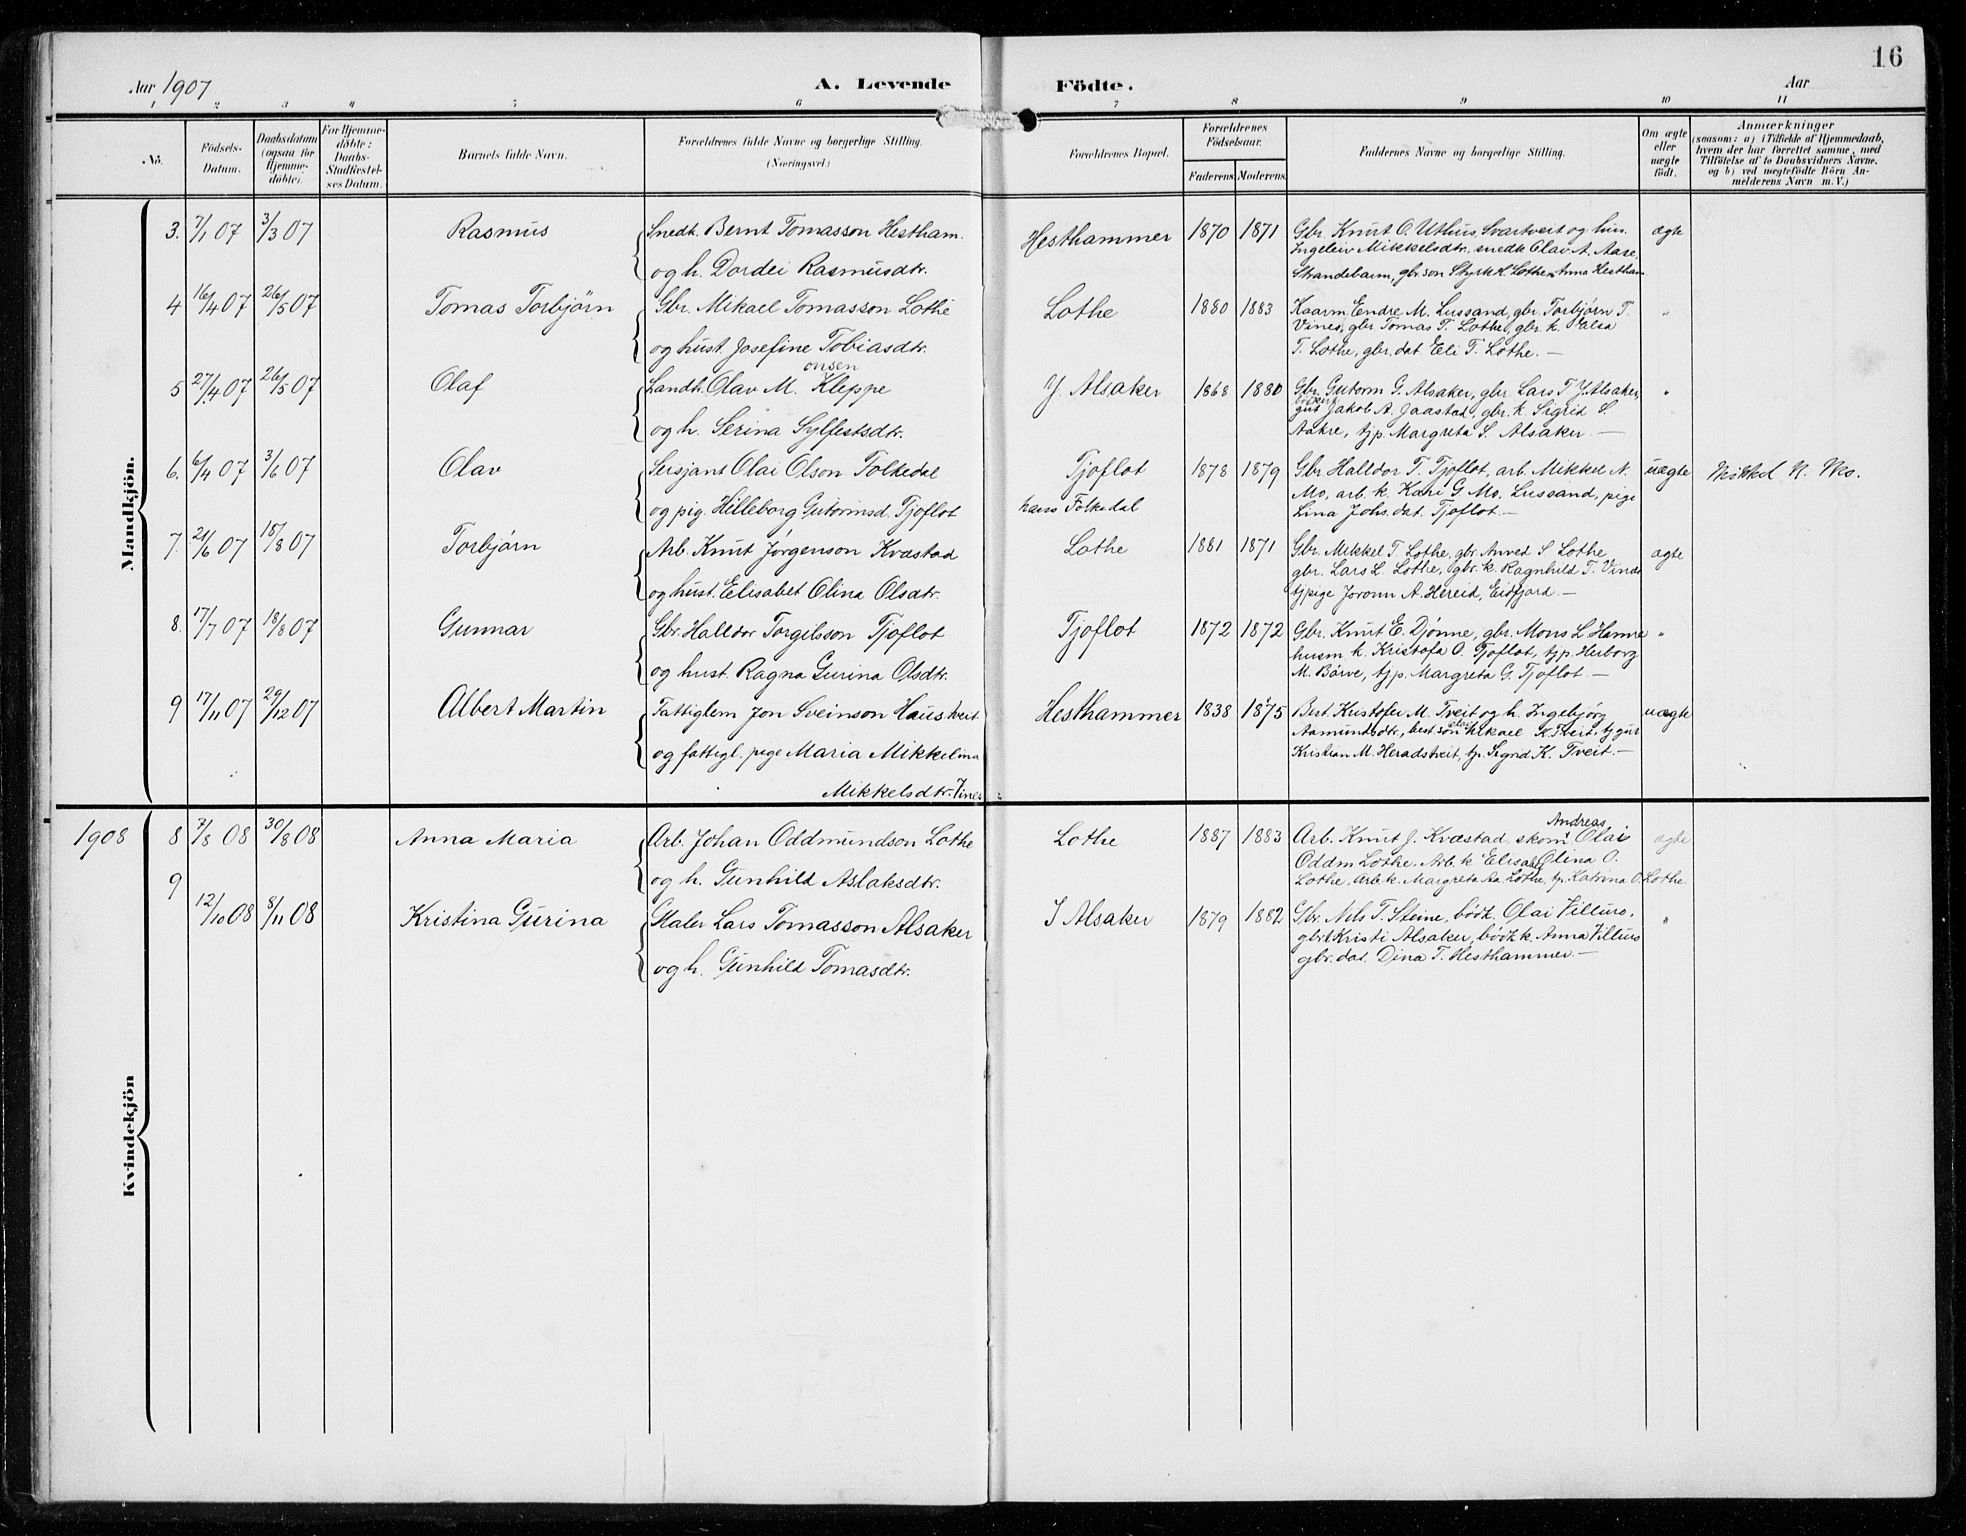 16
Aar 1907
A. Levende Födte.
Aar
1 2 3 4 5 6 7 8 9 10 11
No.
Födsels-Datum.
Daabsdatum (ogsaa for Hjemme-döbte).
For Hjemme-döbte: Daabs-Stadfæstel-ses Datum.
Barnets fulde Navn.
Forældrenes fulde Navne og borgerlige Stilling. (Næringsvei.)
Forældrenes Bopæl.
Forældrenes Födselsaar.
Faderens Moderens
Faddernes Navne og borgerlige Stilling.
Om ægte eller uægte födt.
Anmærkninger
(saasom: a) i Tilfælde af Hjemmedaab, hvem der har forrettet samme, med Tilföielse af to Daabsvidners Navne. og b) ved uægtefödte Börn An-melderens Navn m. V.)
Mandkjön.
3. 7/1 07 3/3 07 Rasmus Snedk. Bernt Tomasson Hestham. Hesthammer 1870 1871 Gbr. Knut O. Uthus, Svartveit og hus. ægte
og h. Dordei Rasmusdtr. Ingeleiv Mikkelsdtr. snedk Olav A. Aase,
Strandebarm, gbr.son Styrk H Lothe, Anna Hestham
4 16/4 07 26/5 07 Tomas Torbjörn Gbr. Mikael Tomasson Lothe Lothe 1880 1883 Kaarm. Endre M. Lussand, gbr. Torbjörn T. "
og hust. Josefine Tobiasdtr. Vines, gbr Tomas T. Lothe, gbr. k.
T. Lothe, gbr. dat. Eli T. Lothe. —
onsen
5 27/4 07 26/5 07 Olaf Landh. Olav M. Kleppe Y. Alsaker 1868 1880 Gbr. Gutorm G. Alsaker, gbr. Lars T Y. Alsaker, "
og h. Serina Sylfestsdtr. gut Jakob A. Jaastad, gbr. k. Sigrid S.
Aakre, tjp. Margreta S. Alsaker —
6. 6/4 07 3/6 07 Olav Sersjant Olai Olson Folkedal Tjoflot 1878 1879 Gbr Halldor T. Tjoflot, arb. Mikkel N. uægte Mikkel N. Mo.
og pig. Hilleborg Gutormsd. Tjoflot hans Folkedal Mo, arb. k. Kari G Mo, Lussand, pige
Lina Johs. dat. Tjoflot. —
7. 21/6 07 18/8 07 Torbjörn Arb. Knut Jørgenson Kvæstad Lothe 1881 1871 Gbr. Mikkel T. Lothe, gbr. Anved S. Lothe ægte
og hust. Elisabet Olina Olsdtr. gbr. Lars L. Lothe, gbr. k. Ragnhild T. Vines
tjpige Joronn A. Hereid, Eidfjord. —
8. 17/7 07 18/8 07 Gunnar Gbr. Halldor Torgilsson Tjoflot Tjoflot 1872 1872 Gbr. Knut E. Djønne, gbr. Mons L Hamre "
og hust. Ragna Gurina Olsdtr. husm k. Kristofa O. Tjoflot, tjp. Herborg
M. Börve, tjp. Margreta G. Tjoflot. —
9 17/11 07 29/12 07 Albert Martin Fattiglem Jon Sveinson Haustveit Hesthammer 1838 1875 Best. Kristofer M. Tveit og h. Ingebjörg uægte
og fattigl. pige Maria Mikkelina Aamundsdtr, best. søn Mikael K. Tveit, tj gut
Mikkelsdtr. Vines Kristian M. Heradstveit, tp. Sigrid K. Tveit. —
Kvindekjön
1908 8 7/8 08 30/8 08 Anna Maria Arb. Johan Oddmundson Lothe Lothe 1887 1883 Arb. Knut J. Kvæstad, skom. Andreas Olai ægte
og h. Gunhild Aslaksdtr. Oddm Lothe. Arb. k Elisabet Olina O.
Lothe, Arb. k. Margreta Aa Lothe, tp. Katrina O. Lothe.
9 12/10 08 8/11 08 Kristina Gurina Maler Lars Tomasson Alsaker I Alsaker 1879 1882 Gbr. Nils T. Steine, bödk. Olai Villuro, "
og h. Gunhild Tomasdtr. gbr.k Kristi Alsaker, bödk k. Anna Villuro
gbr. dat. Dina T. Hesthammer. —